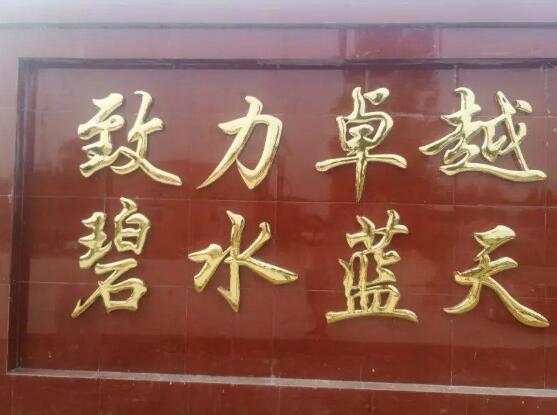 致力卓越
碧水蓝天